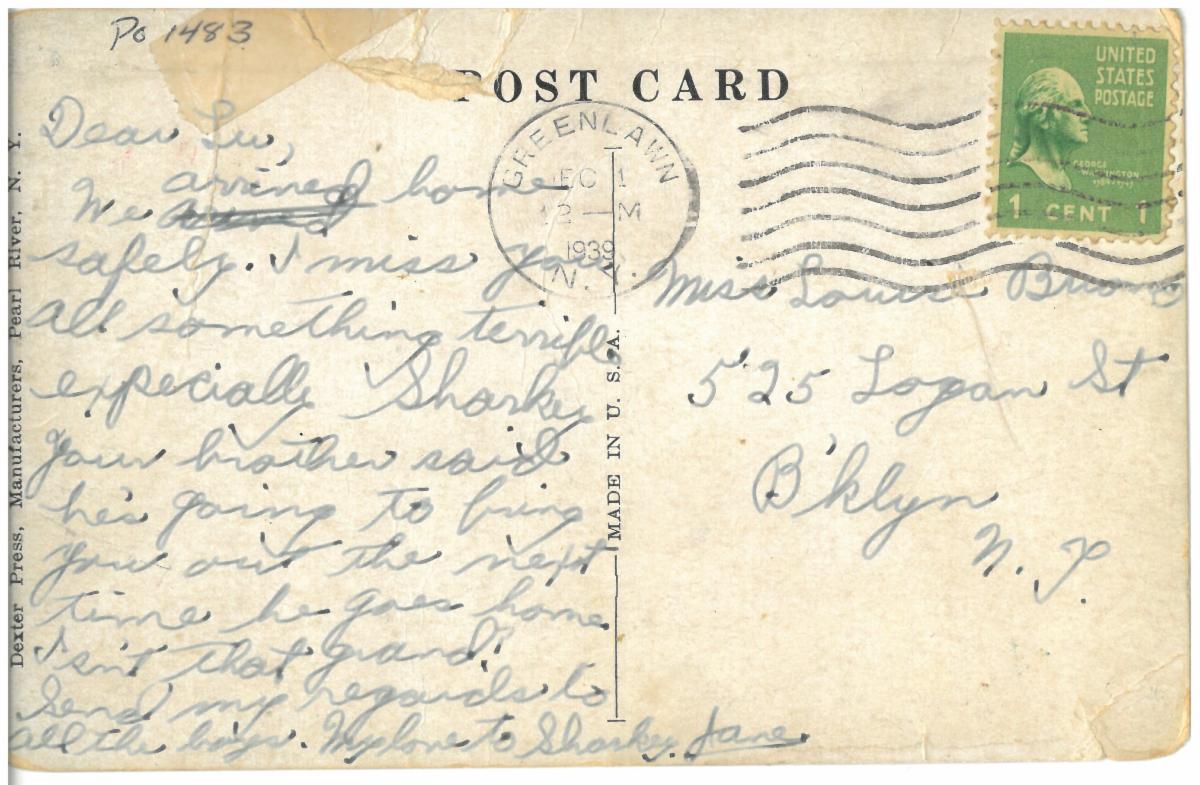 Po 1483
POST CARD
UNITED
STATES
POSTAGE
GEORGE
WASHINGTON
1 CENT 1
GREENLAWN
DEC 1
12 — M
1939
N.Y.
Dear Lu,
We arrived home
safely. I miss you
all something terrible
especially Sharkey
Your brother said
he's going to bring
you out the next
time he goes home.
Isn't that grand!
Send my regards to
all the boys. My love to Sharkey. Jane.
Miss Louise
525 Logan St
B'klyn
N. Y.
MADE IN U. S. A.
Dexter Press, Manufacturers, Pearl River, N. Y.